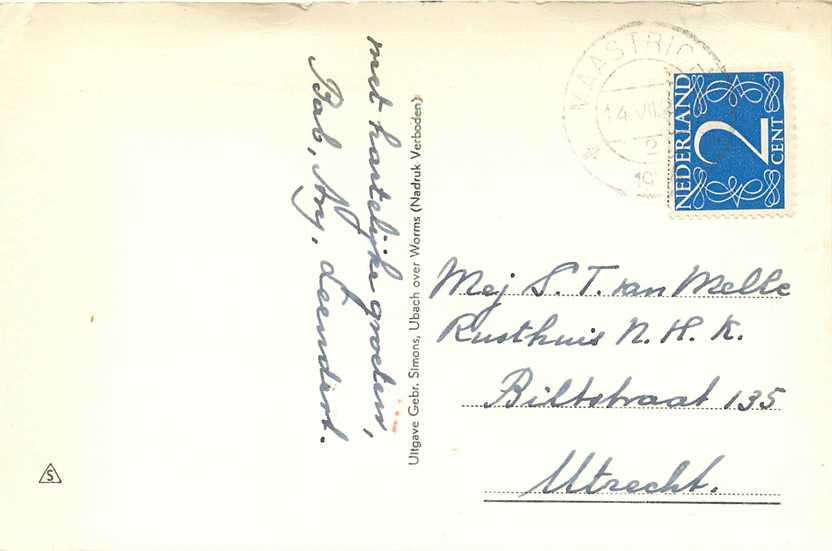 met hartelijke groeten,
Bab, Any, Leendert.
Uitgave Gebr. Simons, Ubach over Worms (Nadruk Verboden)
MAASTRICH
14 VII
NEDERLAND
2
CENT
Mej S. T. van Melle
Rusthuis N. H. K.
Biltstraat 135
Utrecht.
S